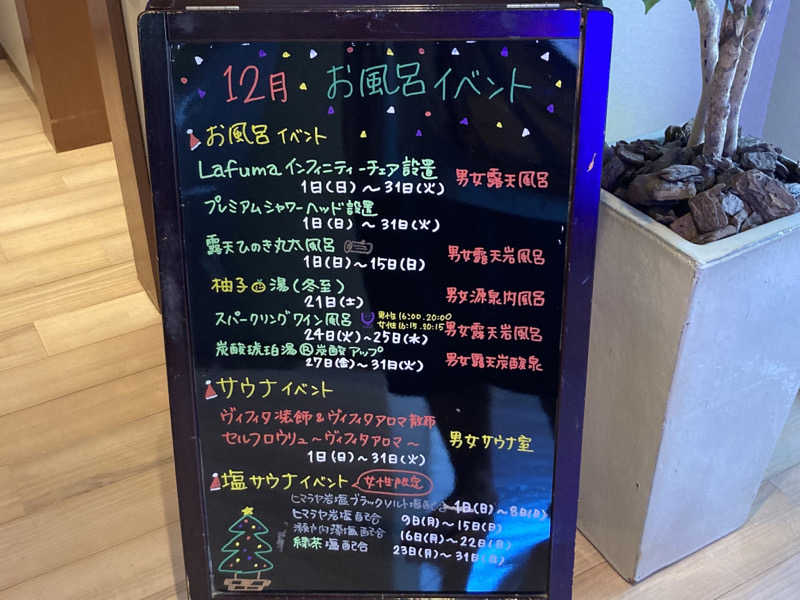 12月 お風呂イベント
お風呂イベント
Lafuma インフィニティーチェア設置
1日(日)～31日(火) 男女露天風呂
プレミアムシャワーヘッド設置
1日(日)～31日(火)
露天ひのき丸太風呂
1日(日)～15日(日) 男女露天岩風呂
柚子湯(冬至)
21日(土) 男女源泉内風呂
スパークリングワイン風呂 男性16:00.20:00
女性16:15.20:15
24日(火)～25日(水) 男女露天岩風呂
炭酸琥珀湯Ⓡ炭酸アップ
27日(金)～31日(火) 男女露天炭酸泉
サウナイベント
ヴィフィタ装飾&ヴィフィタアロマ散布
セルフロウリュ～ヴィフィタアロマ～ 男女サウナ室
1日(日)～31日(火)
塩サウナイベント 女性限定
ヒマラヤ岩塩ブラックソルト塩配合 1日(日)～8日(日)
ヒマラヤ岩塩配合 9日(月)～15日(日)
瀬戸内藻塩配合 16日(月)～22日(日)
緑茶塩配合 23日(月)～31日(火)